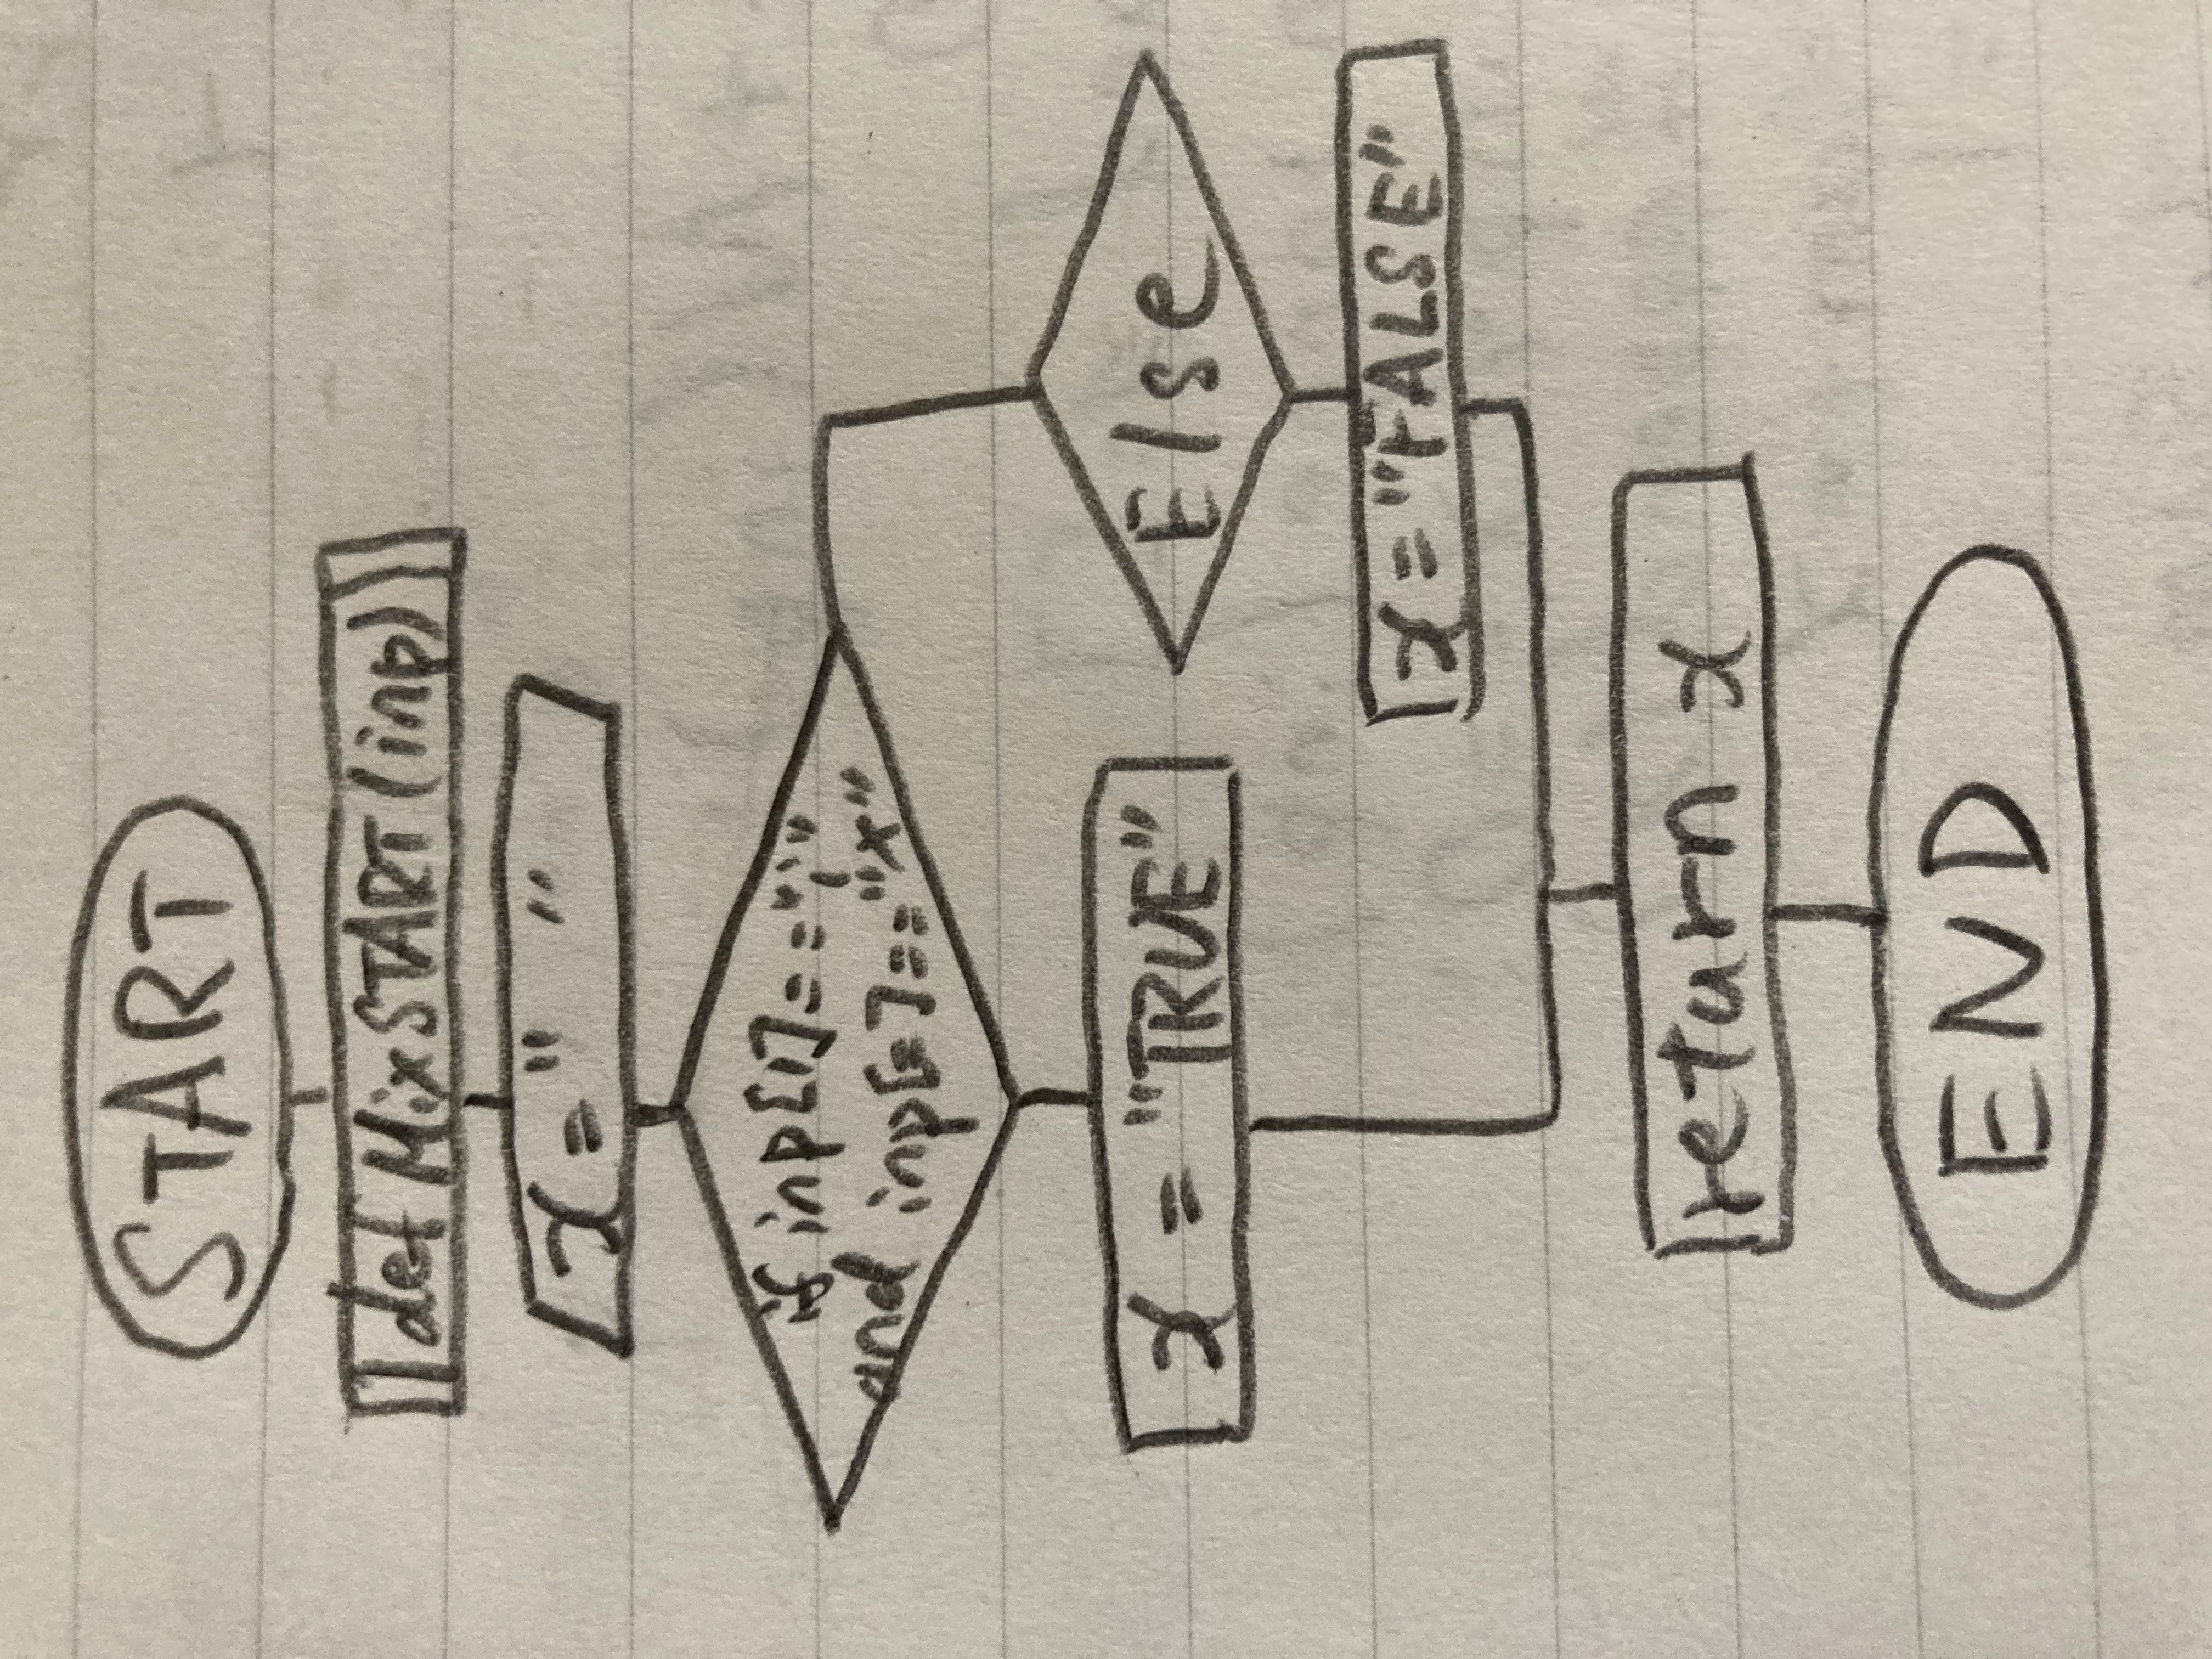 START
def MixSTART(inp)
x = " "
if inp[1]=="i"
and inp[2]=="x"
Else
x = "TRUE"
x = "FALSE"
return x
END